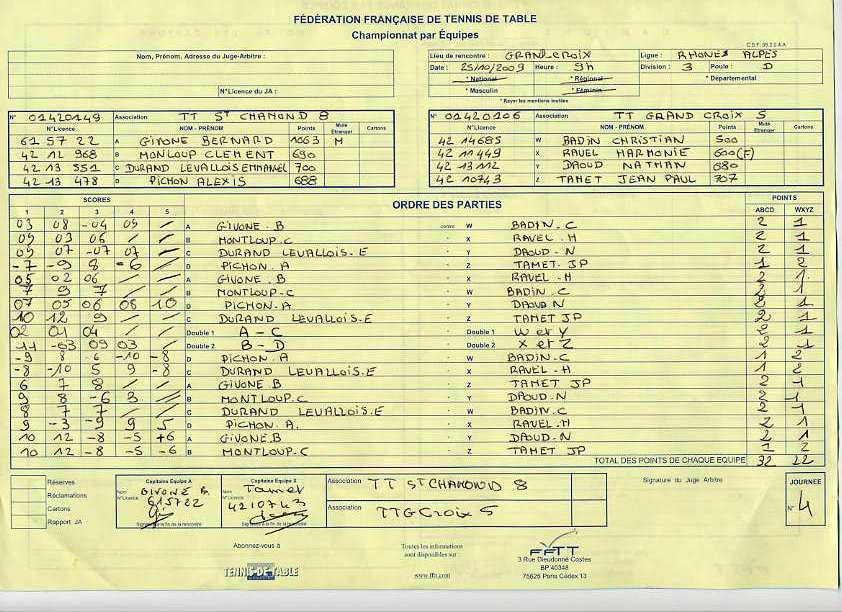 FÉDÉRATION FRANÇAISE DE TENNIS DE TABLE
Championnat par Équipes
Nom, Prénom, Adresse du Juge-Arbitre :
N°Licence du JA :
Lieu de rencontre : GRAND.CROIX Ligue : RHONES ALPES
Date : 25/10/2009 Heure : 9h Division : 3 Poule : D
* National * Régional * Départemental
* Masculin * Féminin
* Rayer les mentions inutiles
N° 01420149 Association TT ST CHAMOND 8
N°Licence NOM - PRÉNOM Points Muté Etranger Cartons
61 57 22 A GIVONE BERNARD 1063 M
42 12 968 B MONLOUP CLEMENT 690
42 13 551 C DURAND LEVALLOIS EMMANUEL 700
42 13 478 D PICHON ALEXIS 688
N° 01420106 Association TT GRAND CROIX 5
N°Licence NOM - PRÉNOM Points Muté Etranger Cartons
42 14685 W BADIN CHRISTIAN 500
42 11449 X RAVEL HARMONIE 600(F)
42 13112 Y DAOUD NATHAN 680
42 10743 Z TAMET JEAN PAUL 707
SCORES ORDRE DES PARTIES POINTS
1 2 3 4 5 ABCD WXYZ
03 08 -04 09 / A GIVONE.B contre W BADIN.C 2 1
09 03 06 / / B MONTLOUP.C - X RAVEL.H 2 1
09 07 -07 07 / C DURAND LEVALLOIS.E - Y DAOUD-N 2 1
-7 -9 8 -6 / D PICHON.A - Z TAMET.JP 1 2
05 02 06 / / A GIVONE.B - X RAVEL.H 2 1
7 9 7 / / B MONTLOUP-C - W BADIN.C 2 1
07 05 06 08 10 D PICHON.A - Y DAOUD.N 2 1
10 12 9 / / C DURAND LEVALLOIS.E - Z TAMET JP 2 1
02 01 04 / / Double 1 A-C - Double 1 W et Y 2 1
11 -03 09 03 / Double 2 B-D - Double 2 X et Z 2 1
-9 8 6 -10 -8 D PICHON.A - W BADIN.C 1 2
-8 -10 5 9 -8 C DURAND LEVALLOIS.E - X RAVEL.H 1 2
6 7 8 / / A GIVONE.B - Z TAMET JP 2 1
9 8 -6 3 / B MONTLOUP.C - Y DAOUD.N 2 1
8 7 7 / / C DURAND LEVALLOIS.E - W BADIN.C 2 1
9 -3 -9 9 5 D PICHON A. - X RAVEL.H 2 1
10 12 -8 -5 +6 A GIVONE.B - Y DAOUD-N 2 1
10 12 -8 -5 -6 B MONTLOUP-C - Z TAMET JP 1 2
TOTAL DES POINTS DE CHAQUE EQUIPE 32 22
Réserves
Réclamations
Cartons
Rapport JA
Capitaine Equipe A
Nom GIVONE B.
N°Licence 615722
Signature à la fin de la rencontre
Capitaine Equipe X
Nom Tamet
N°Licence 4210743
Signature à la fin de la rencontre
Association TT ST CHAMOND 8
Association TTGCroix 5
Signature du Juge Arbitre
JOURNEE
N° 4
Abonnez-vous à
TENNIS DE TABLE
Toutes les informations
sont disponibles sur :
www.fftt.com
FFTT
3 Rue Dieudonné Costes
BP 40348
75625 Paris Cedex 13